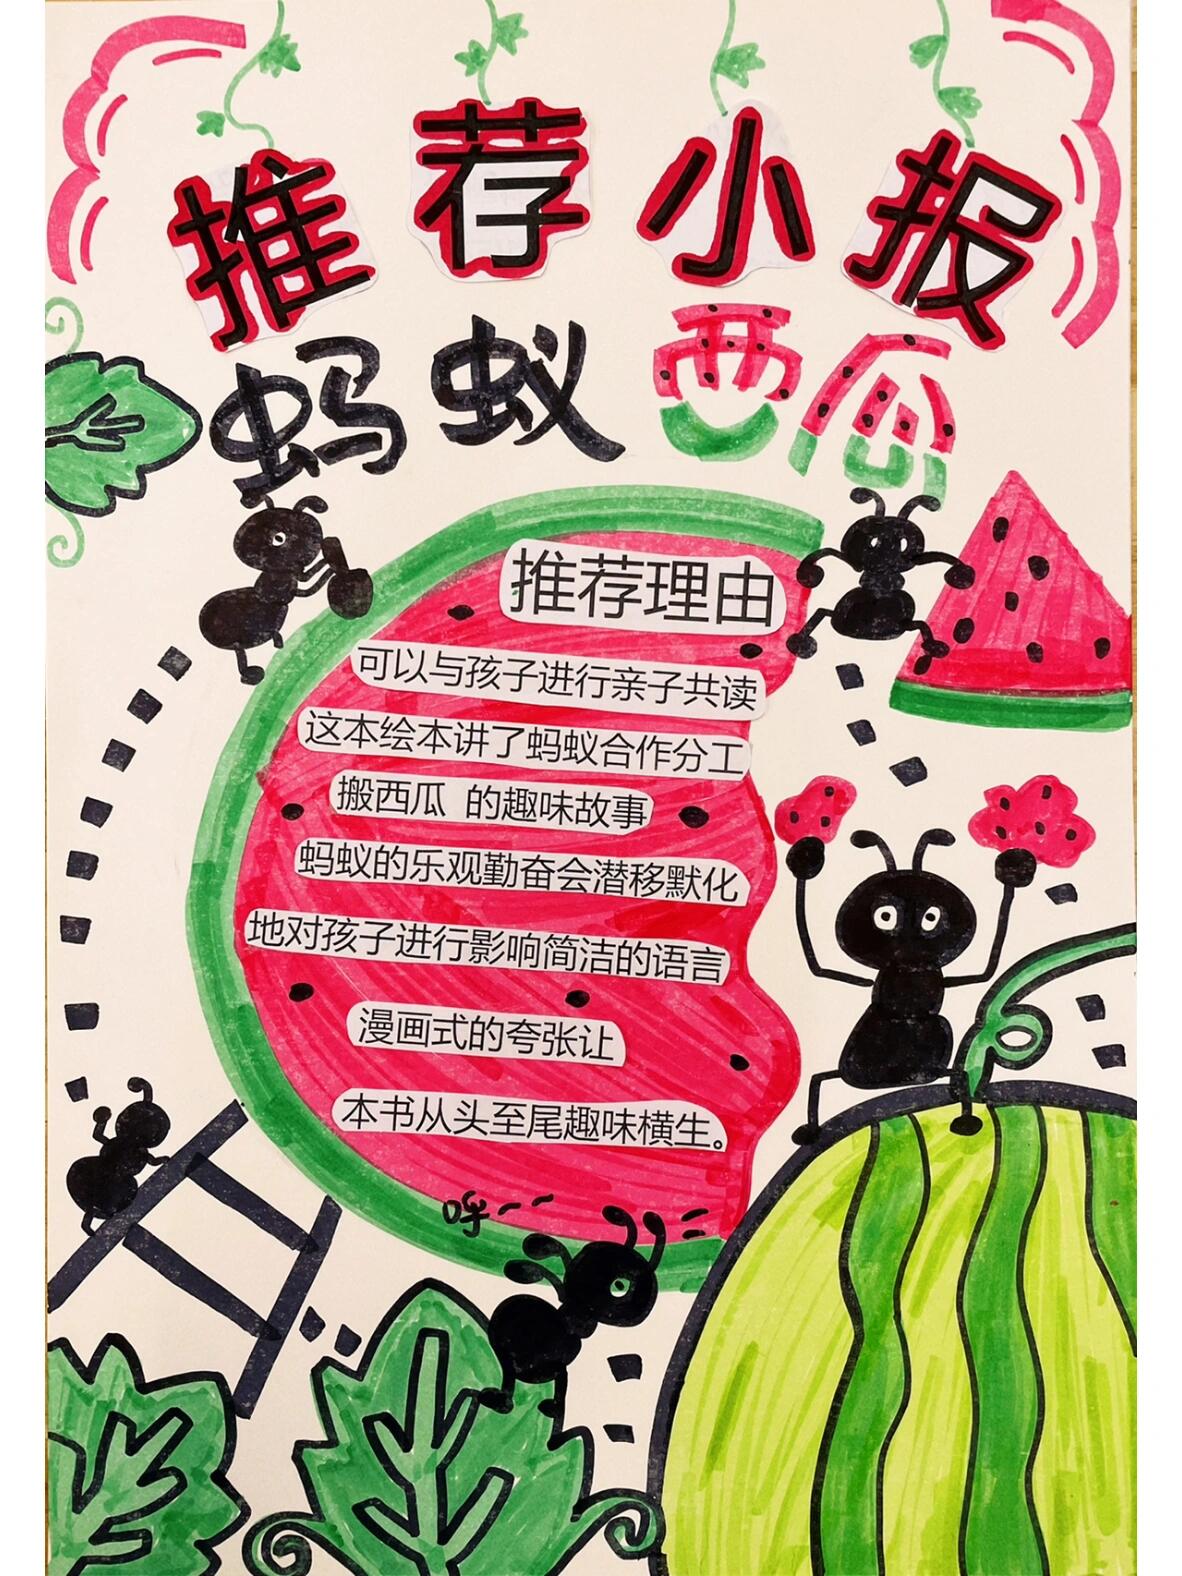 推荐小报
蚂蚁西瓜
推荐理由
可以与孩子进行亲子共读
这本绘本讲了蚂蚁合作分工
搬西瓜 的趣味故事
蚂蚁的乐观勤奋会潜移默化
地对孩子进行影响简洁的语言
漫画式的夸张让
本书从头至尾趣味横生。
呼--